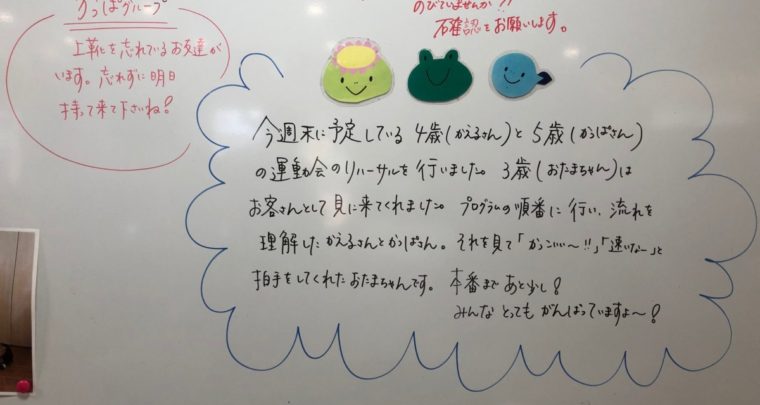 っぱグループ
上靴を忘れているお友達が
います。忘れずに明日
持って来て下さいね!
のびていませんか
確認をお願いします。
今週末に予定している4歳(かえるさん)と5歳(かっぱさん)
の運動会のリハーサルを行いました。3歳(おたまちゃん)は
お客さんとして見に来てくれました。プログラムの順番に行い、流れを
理解したかえるさんとかっぱさん。それを見て「かっこいい〜!!」「速いなー」と
拍手をしてくれたおたまちゃんです。本番まであと少し!
みんなとってもがんばっていますよ〜!